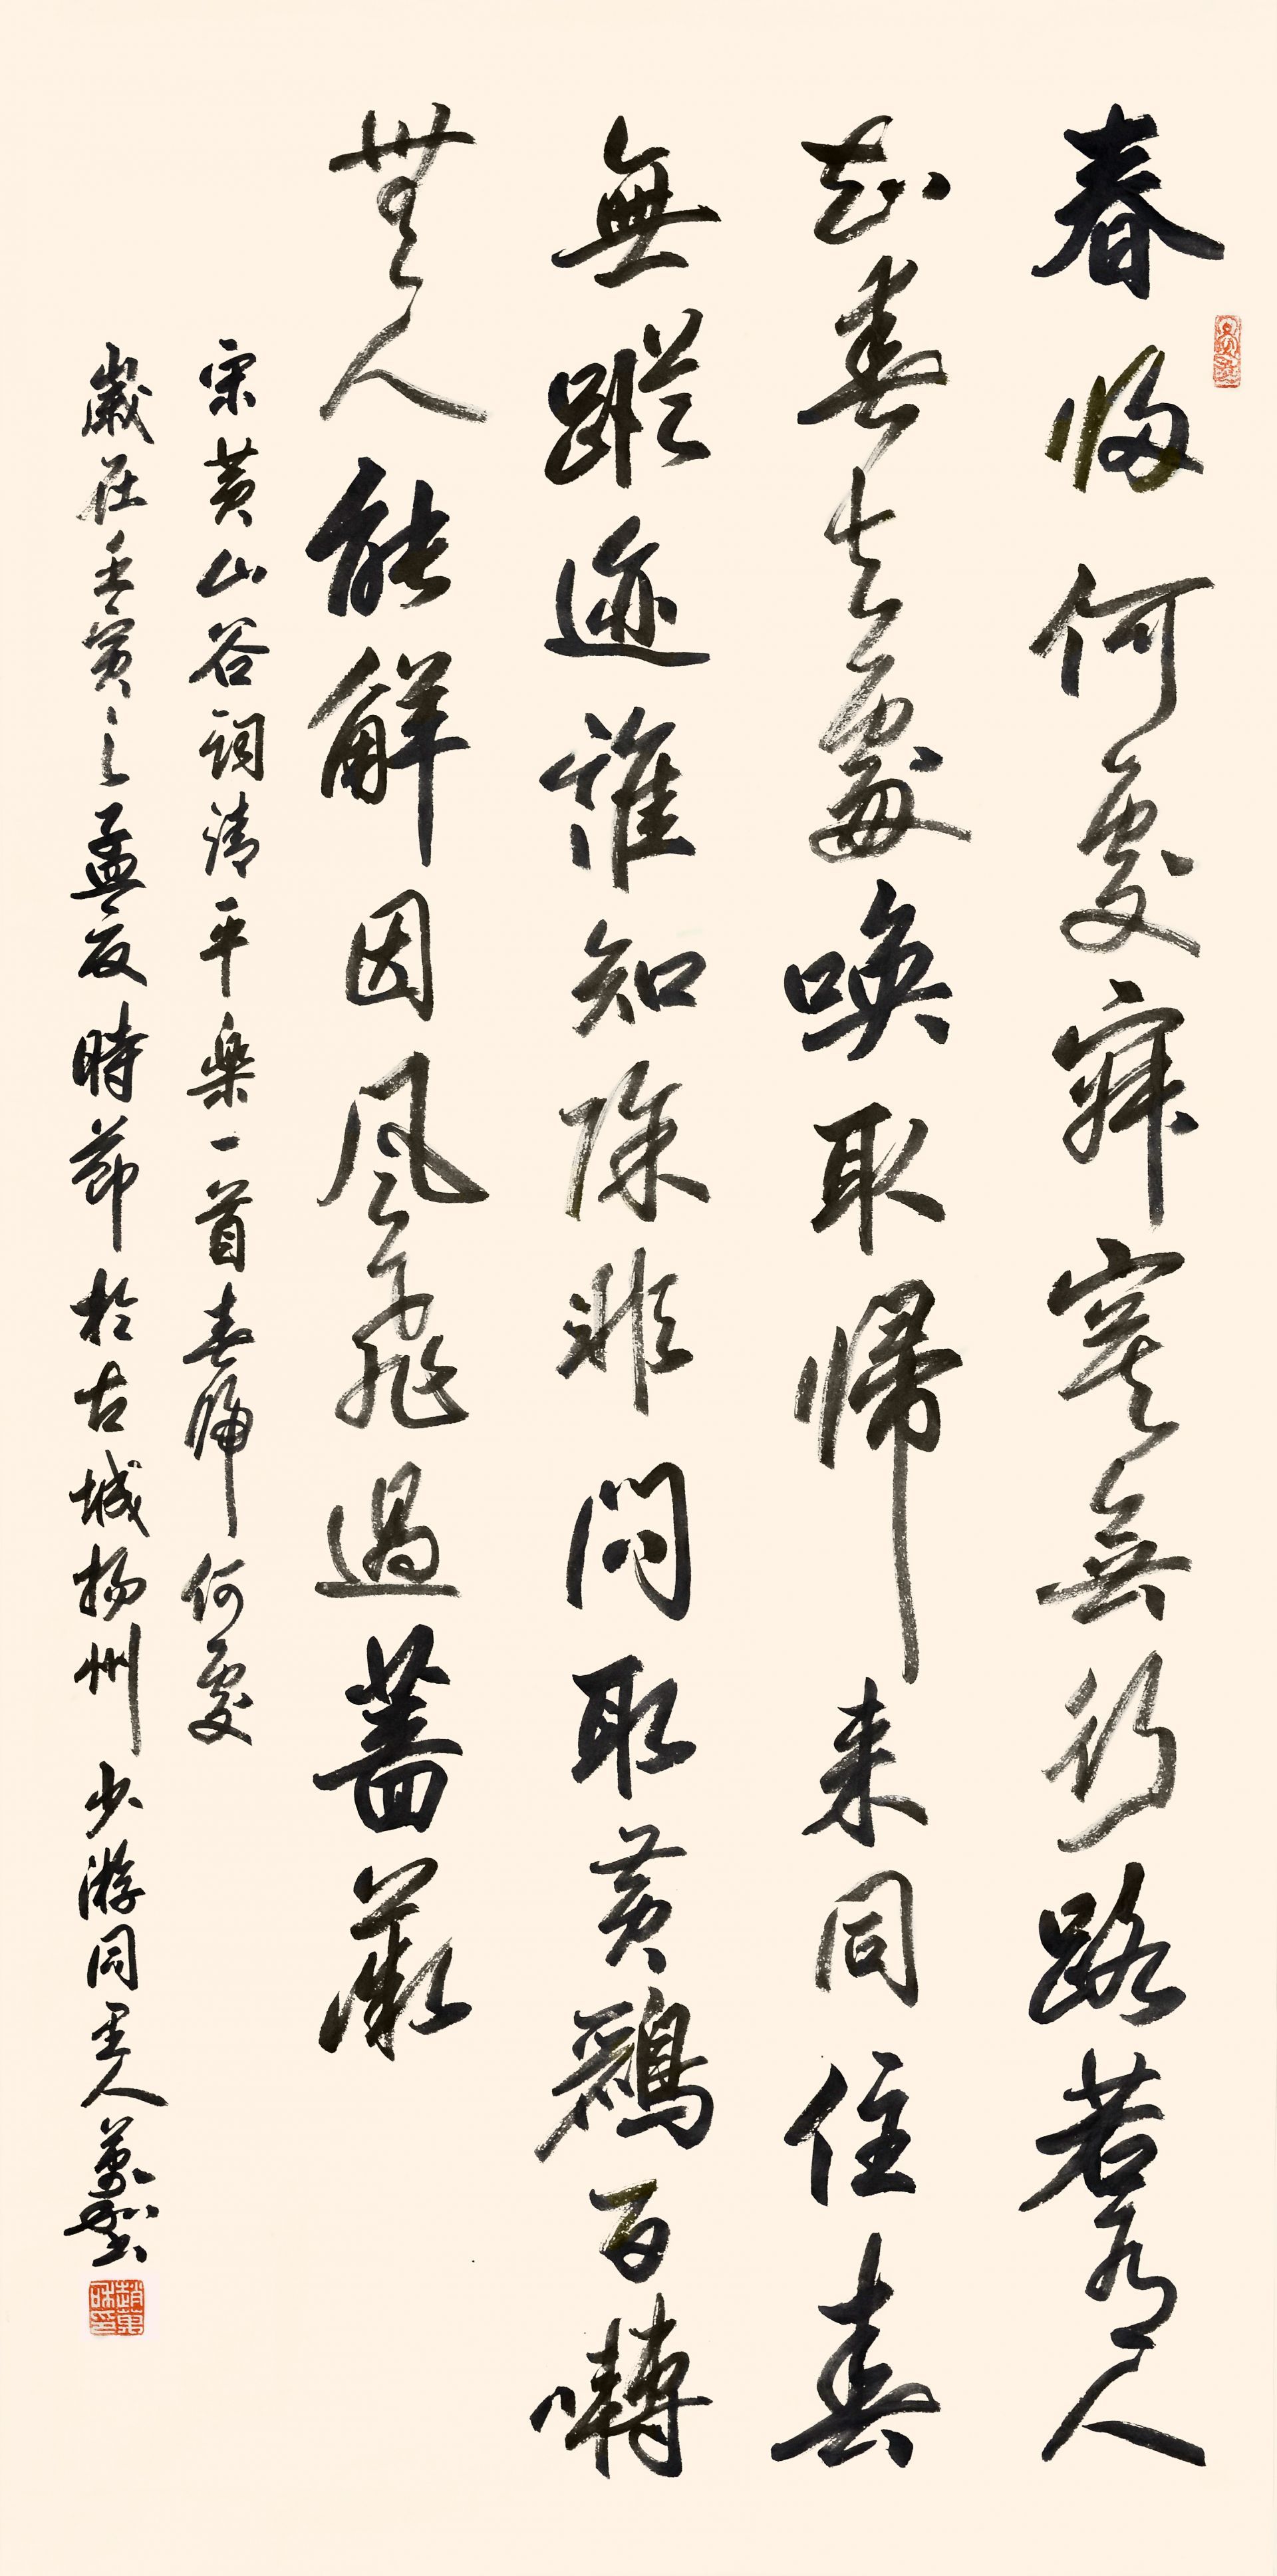 春歸何處寂寞無行路若有人
知春去處喚取歸来同住春
無蹤迹誰知除非問取黄鸝百囀
無人能解因風飛過薔薇
宋黄山谷詞清平樂一首春歸何處
歲在壬寅之孟夏時節於古城揚州少游同里人萬
趙萬